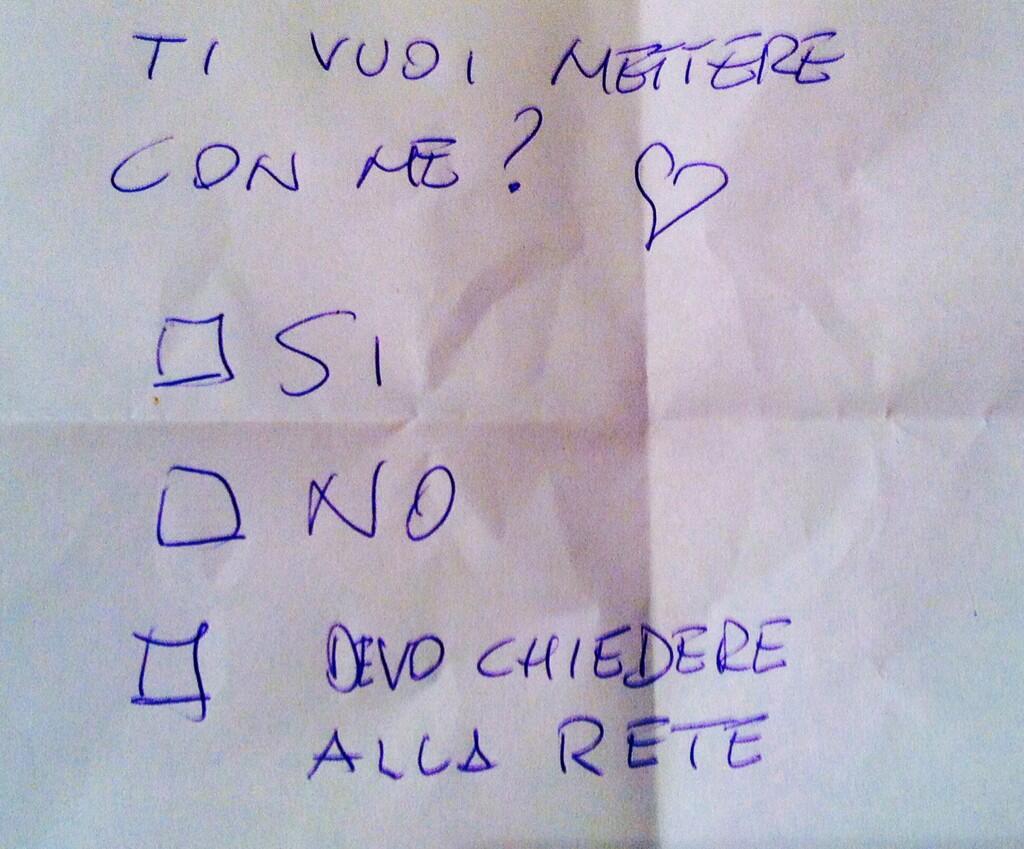 TI VUOI METTERE
CON ME?
SI
NO
DEVO CHIEDERE
ALLA RETE